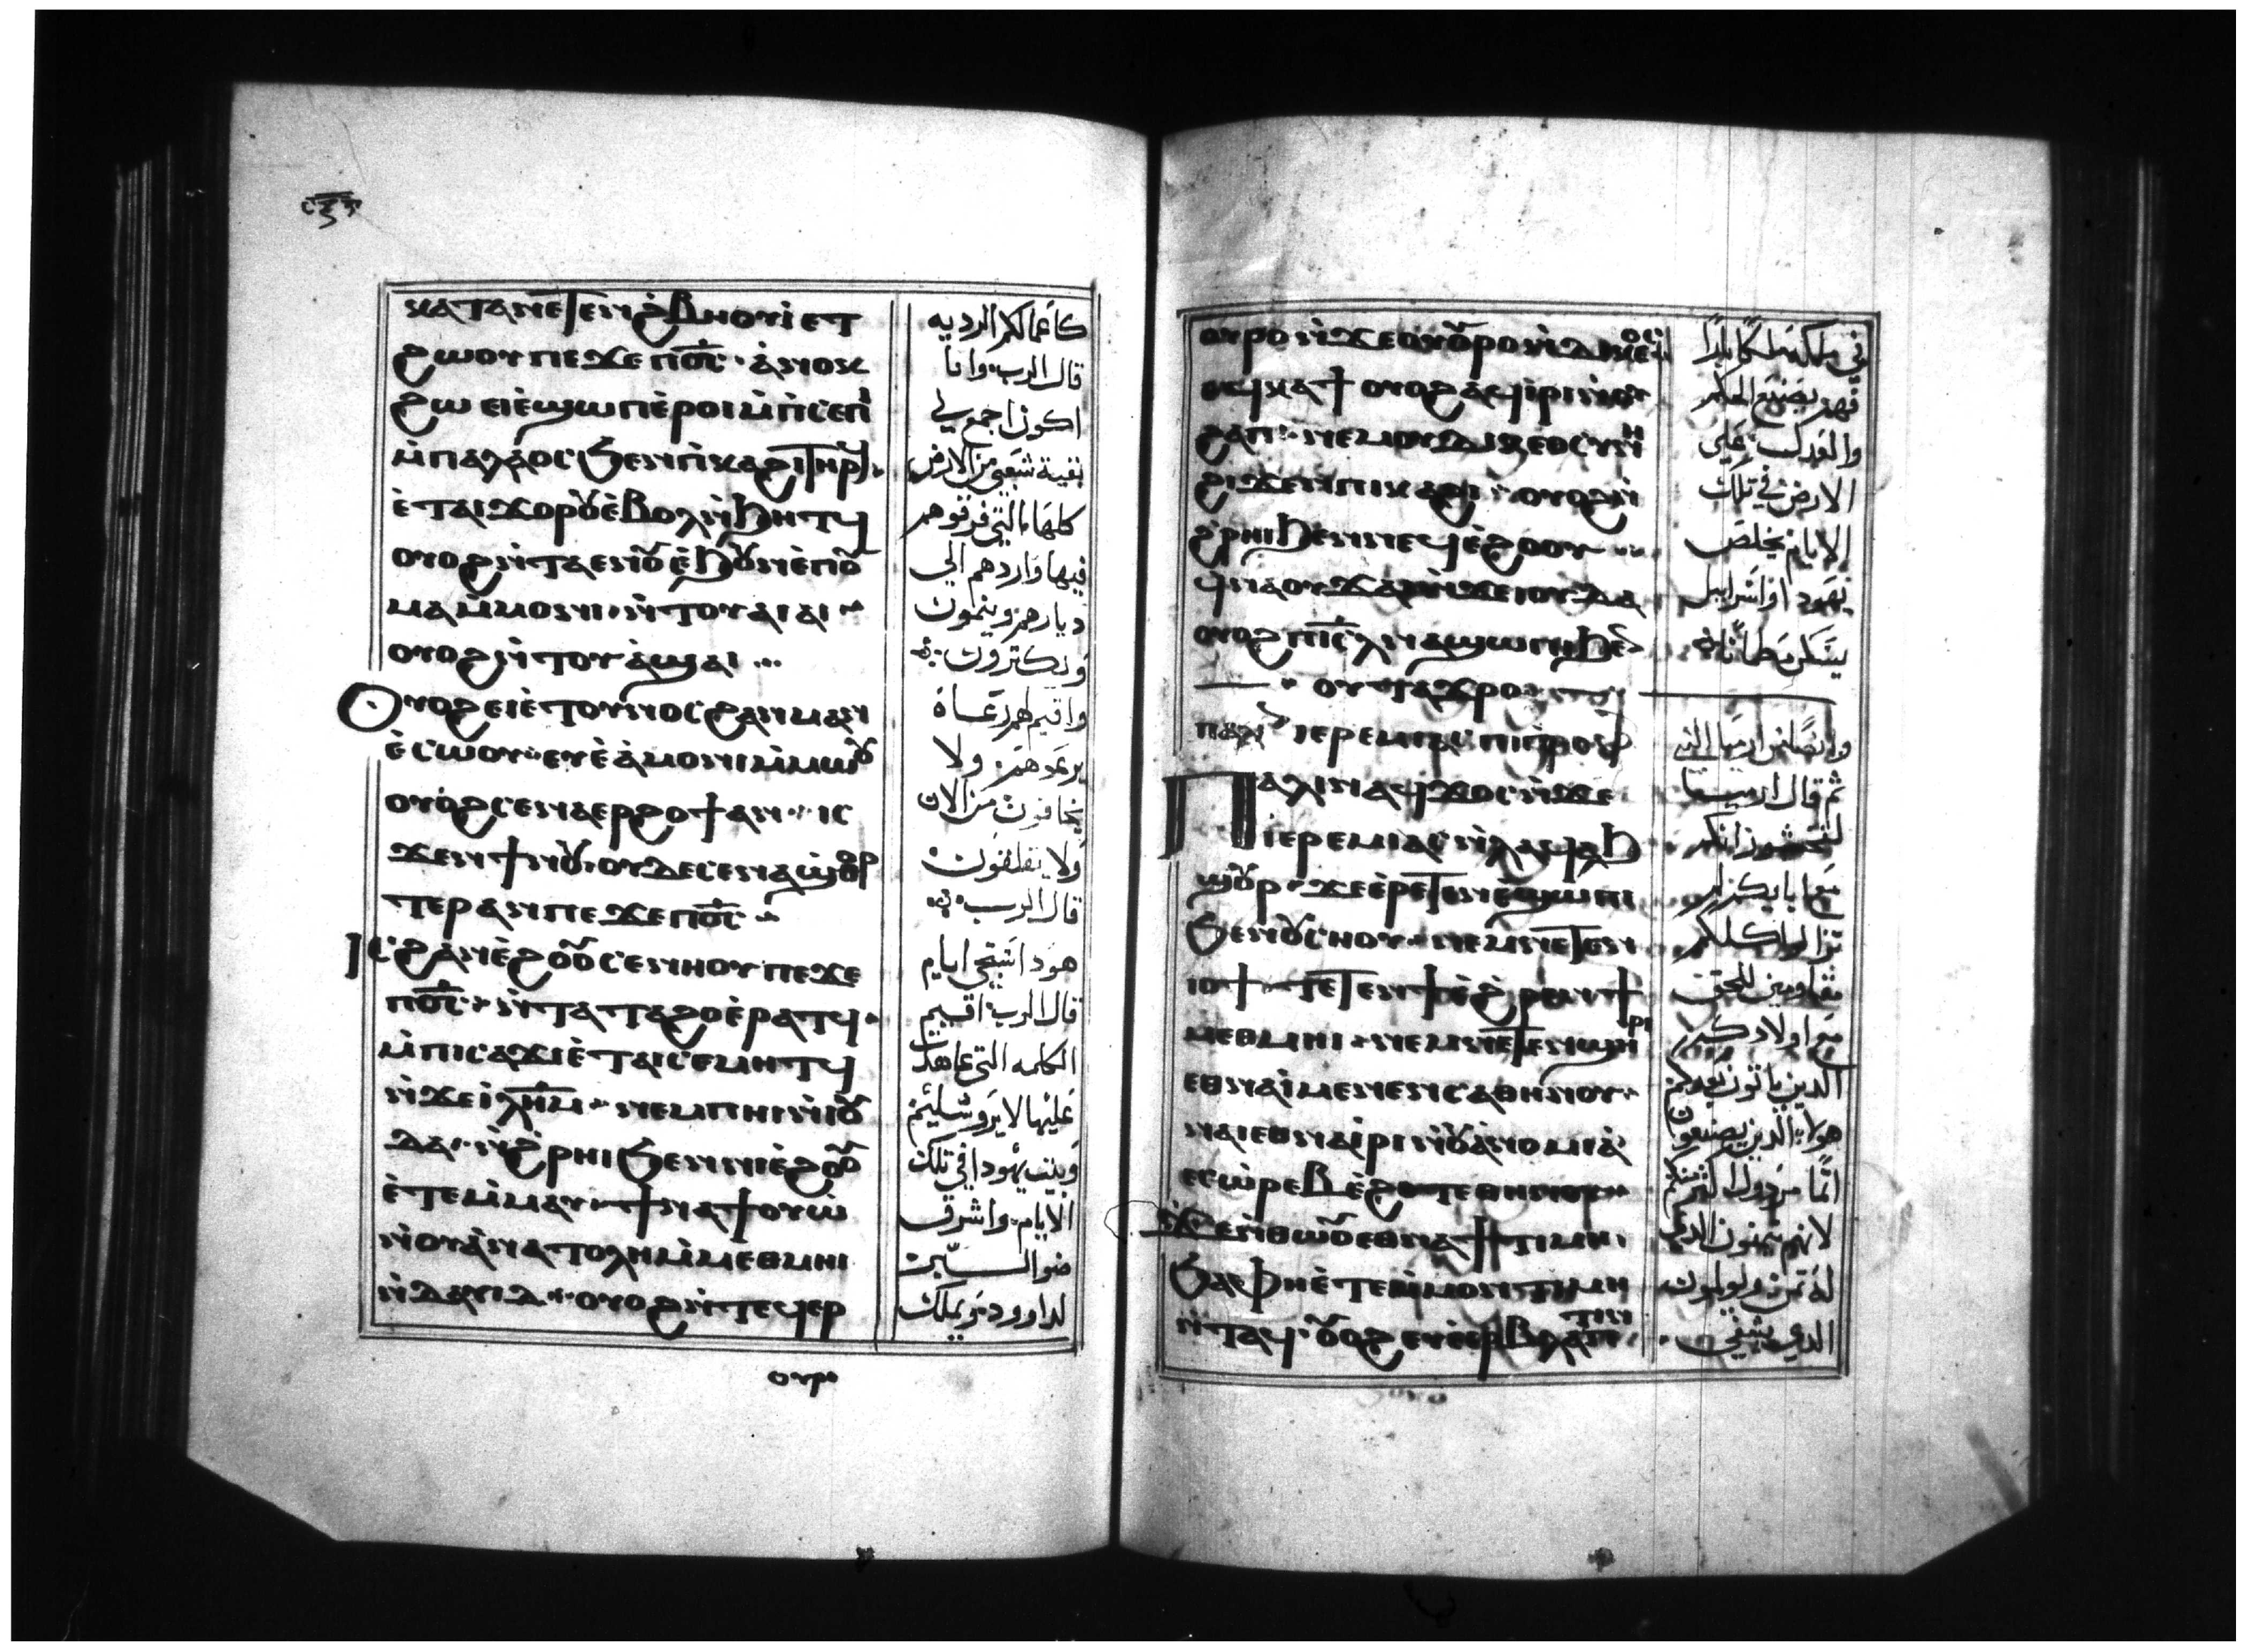 ⲕⲁⲧⲁ ⲛⲉⲧⲉⲛϩⲃⲏⲟⲩⲓ ⲉⲧ
ϩⲱⲟⲩ ⲡⲉϫⲉ ⲡⲟ̅ⲥ̅ · ⲁⲛⲟⲕ
ϩⲱ ⲉⲓⲉϣⲱⲡ ⲉⲣⲟⲓ ⲙ̀ⲡⲥⲉⲡⲓ
ⲙ̀ⲡⲁⲗⲁⲟⲥ ϧⲉⲛ ⲡⲓⲕⲁϩⲓ ⲧⲏⲣϥ
ⲉ̀ⲧⲁⲓϫⲟⲣⲟⲩ ⲉ̀ⲃⲟⲗ ⲛ̀ϧⲏⲧϥ
ⲟⲩⲟϩ ⲛ̀ⲧⲁⲉⲛⲟⲩ ⲉ̀ϧⲟⲩⲛ ⲉ̀ⲡⲟⲩ
ⲙⲁⲙ̀ⲙⲟⲛⲓ · ⲛ̀ⲧⲟⲩⲁⲓⲁⲓ
ⲟⲩⲟϩ ⲛ̀ⲧⲟⲩⲁ̀ϣⲁⲓ ...
Ⲟⲩⲟϩ ⲉⲓⲉ̀ⲧⲟⲩⲛⲟⲥ ϩⲁⲛⲙⲁⲛ
ⲉ̀ⲥⲱⲟⲩ · ⲉⲩⲉ̀ⲁ̀ⲙⲟⲛⲓ ⲙ̀ⲙⲱⲟⲩ
ⲟⲩⲟϩ ⲥⲉⲛⲁⲉⲣϩⲟϯ ⲁⲛ · ⲓⲥ
ϫⲉⲛ ϯⲛⲟⲩ ⲟⲩⲇⲉ ⲥⲉⲛⲁϣ̀ⲑⲟⲣ
ⲧⲉⲣ ⲁⲛ ⲡⲉϫⲉ ⲡⲟ̅ⲥ̅
Ⲓⲥ ϩⲁⲛⲉ̀ϩⲟⲟⲩ ⲥⲉⲛⲏⲟⲩ ⲡⲉϫⲉ
ⲡⲟ̅ⲥ̅ · ⲛ̀ⲧⲁⲧⲁϩⲟ ⲉ̀ⲣⲁⲧϥ
ⲙ̀ⲡⲓⲥⲁϫⲓ ⲉ̀ⲧⲁⲓⲥⲉⲙⲛⲏⲧϥ
ⲛ̀ϫⲉ ⲓ̀ⲗ̅ⲏ̅ⲙ̅ · ⲛⲉⲙ ⲡⲏⲓ ⲛ̀ⲓⲟⲩ
ⲇⲁ · ⲛ̀ϩ̀ⲣⲏⲓ ϧⲉⲛ ⲛⲓⲉ̀ϩⲟⲟⲩ
ⲉ̀ⲧⲉⲙ̀ⲙⲁⲩ · ϯⲛⲁϯⲟⲩⲱ̀
ⲛ̀ⲟⲩⲁ̀ⲛⲁⲧⲟⲗⲏ ⲙ̀ⲙⲉⲑⲙⲏⲓ
ⲛ̀ⲇⲁⲩⲓⲇ · ⲟⲩⲟϩ ⲛ̀ⲧⲉϥⲉⲣ
ⲟⲩⲣⲟ
كأعمالكم الرديه
قال الرب وانا
اكون اجمع لي
بقية شعبي من الارض
كلها التي فرقوهم
فيها واردهم الي
ديارهم وينمون
ويكثرون
واقيم لهم رعاة
يرعدهم ولا
يخافون من الان
ولا يقلقون
قال الرب
هوذا ستجي ايام
قال الرب اقيم
الكلمه التي عاهدت
عليها لايروشليم
وبيت يهودا في تلك
الايام واشرق
لداوود ويملك
ⲟⲩⲣⲟ ⲛ̀ϫⲉ ⲟⲩⲟⲩⲣⲟ ⲛ̀ⲇⲓⲕⲉⲟⲥ
ⲉϥⲕⲁϯ ⲟⲩⲟϩ ⲁϥⲓ̀ⲣⲓ ⲛ̀ⲟⲩ
ϩⲁⲡ · ⲛⲉⲙ ⲟⲩⲇⲓⲕⲉⲟⲥⲩⲛⲏ
ϩⲓϫⲉⲛ ⲡⲓⲕⲁϩⲓ · ⲟⲩⲟϩ ⲛ̀
ϩ̀ⲣⲏⲓ ϧⲉⲛ ⲛⲉϥⲉ̀ϩⲟⲟⲩ
ϥⲛⲁⲟⲩϫⲁⲓ ⲛ̀ϫⲉ ⲓⲟⲩⲇⲁ
ⲟⲩⲟϩ ⲡⲓ̅ⲥ̅ⲗ̅ ⲛⲁϣⲱⲡⲓ ϧⲉⲛ
ⲟⲩⲧⲁϫⲣⲟ
ⲡⲁⲗⲓⲛ ⲓⲉⲣⲉⲙⲓⲁⲥ ⲡⲓⲡⲣⲟⲫ
Ⲡⲁⲗⲓⲛ ⲁϥϫⲟⲥ ⲛ̀ϫⲉ
ⲓⲉⲣⲉⲙⲓⲁⲥ ⲙ̀ⲡⲁϣⲭ
ϣⲟⲩⲣ · ϫⲉ ⲉ̀ⲣⲉⲧⲉⲛⲉ̀ϣⲱⲡⲓ
ϧⲉⲛ ⲟⲩⲥⲏⲟⲩ · ⲛⲉⲙ ⲛⲉⲧⲉⲛ
ⲓⲟϯ · ⲧⲉⲧⲉⲛϯ ⲉ̀ϩ̀ⲣⲉⲛ ϯ
ⲙⲉⲑⲙⲏⲓ · ⲛⲉⲙ ⲛⲉⲧⲉⲛϣⲏⲣⲓ
ⲉⲑⲛⲁⲓ̀ ⲙⲉⲛⲉⲛⲥⲁ ⲑⲏⲛⲟⲩ
ⲛⲁⲓ ⲉⲑⲛⲁⲓ̀ⲣⲓ ⲛ̀ⲟⲩⲁ̀ⲛⲟⲙⲓⲁ̀
ⲉⲥⲟⲩⲱ̀ⲣⲉⲃ ⲉ̀ϩⲟⲧⲉ ⲑⲏⲛⲟⲩ
ϫⲉ ⲛ̀ⲑⲱⲟⲩ ⲉⲑⲛⲁϯⲧⲓⲙⲏ
ϧⲁ ⲫⲏ ⲉ̀ⲧⲉⲙ̀ⲙⲟⲛ ⲧⲓⲙⲏ
ⲛ̀ⲧⲁϥ · ⲟⲩⲟϩ ⲉⲩⲉ̀ⲉⲣⲃⲗⲁⲡⲧⲓⲛ
والعدل علي
الارض في تلك
الايام يخلص
يهودا واسراييل
ثم قال ارميا
مع ابايكم
مقاومين للحق
مع اولادكم
الذين ياتون بعدكم
هولاء الذين يصنعون
لانهم يثمنون الذي
الذي يشفي